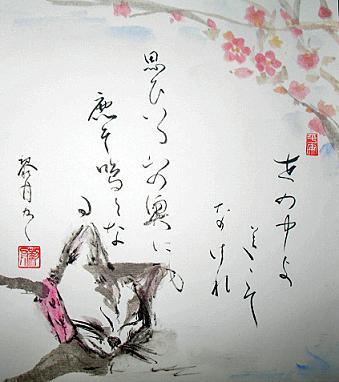 世の中よ
道こそ
なけれ
思ひ入る
山の奥にも
鹿ぞ鳴くな
る